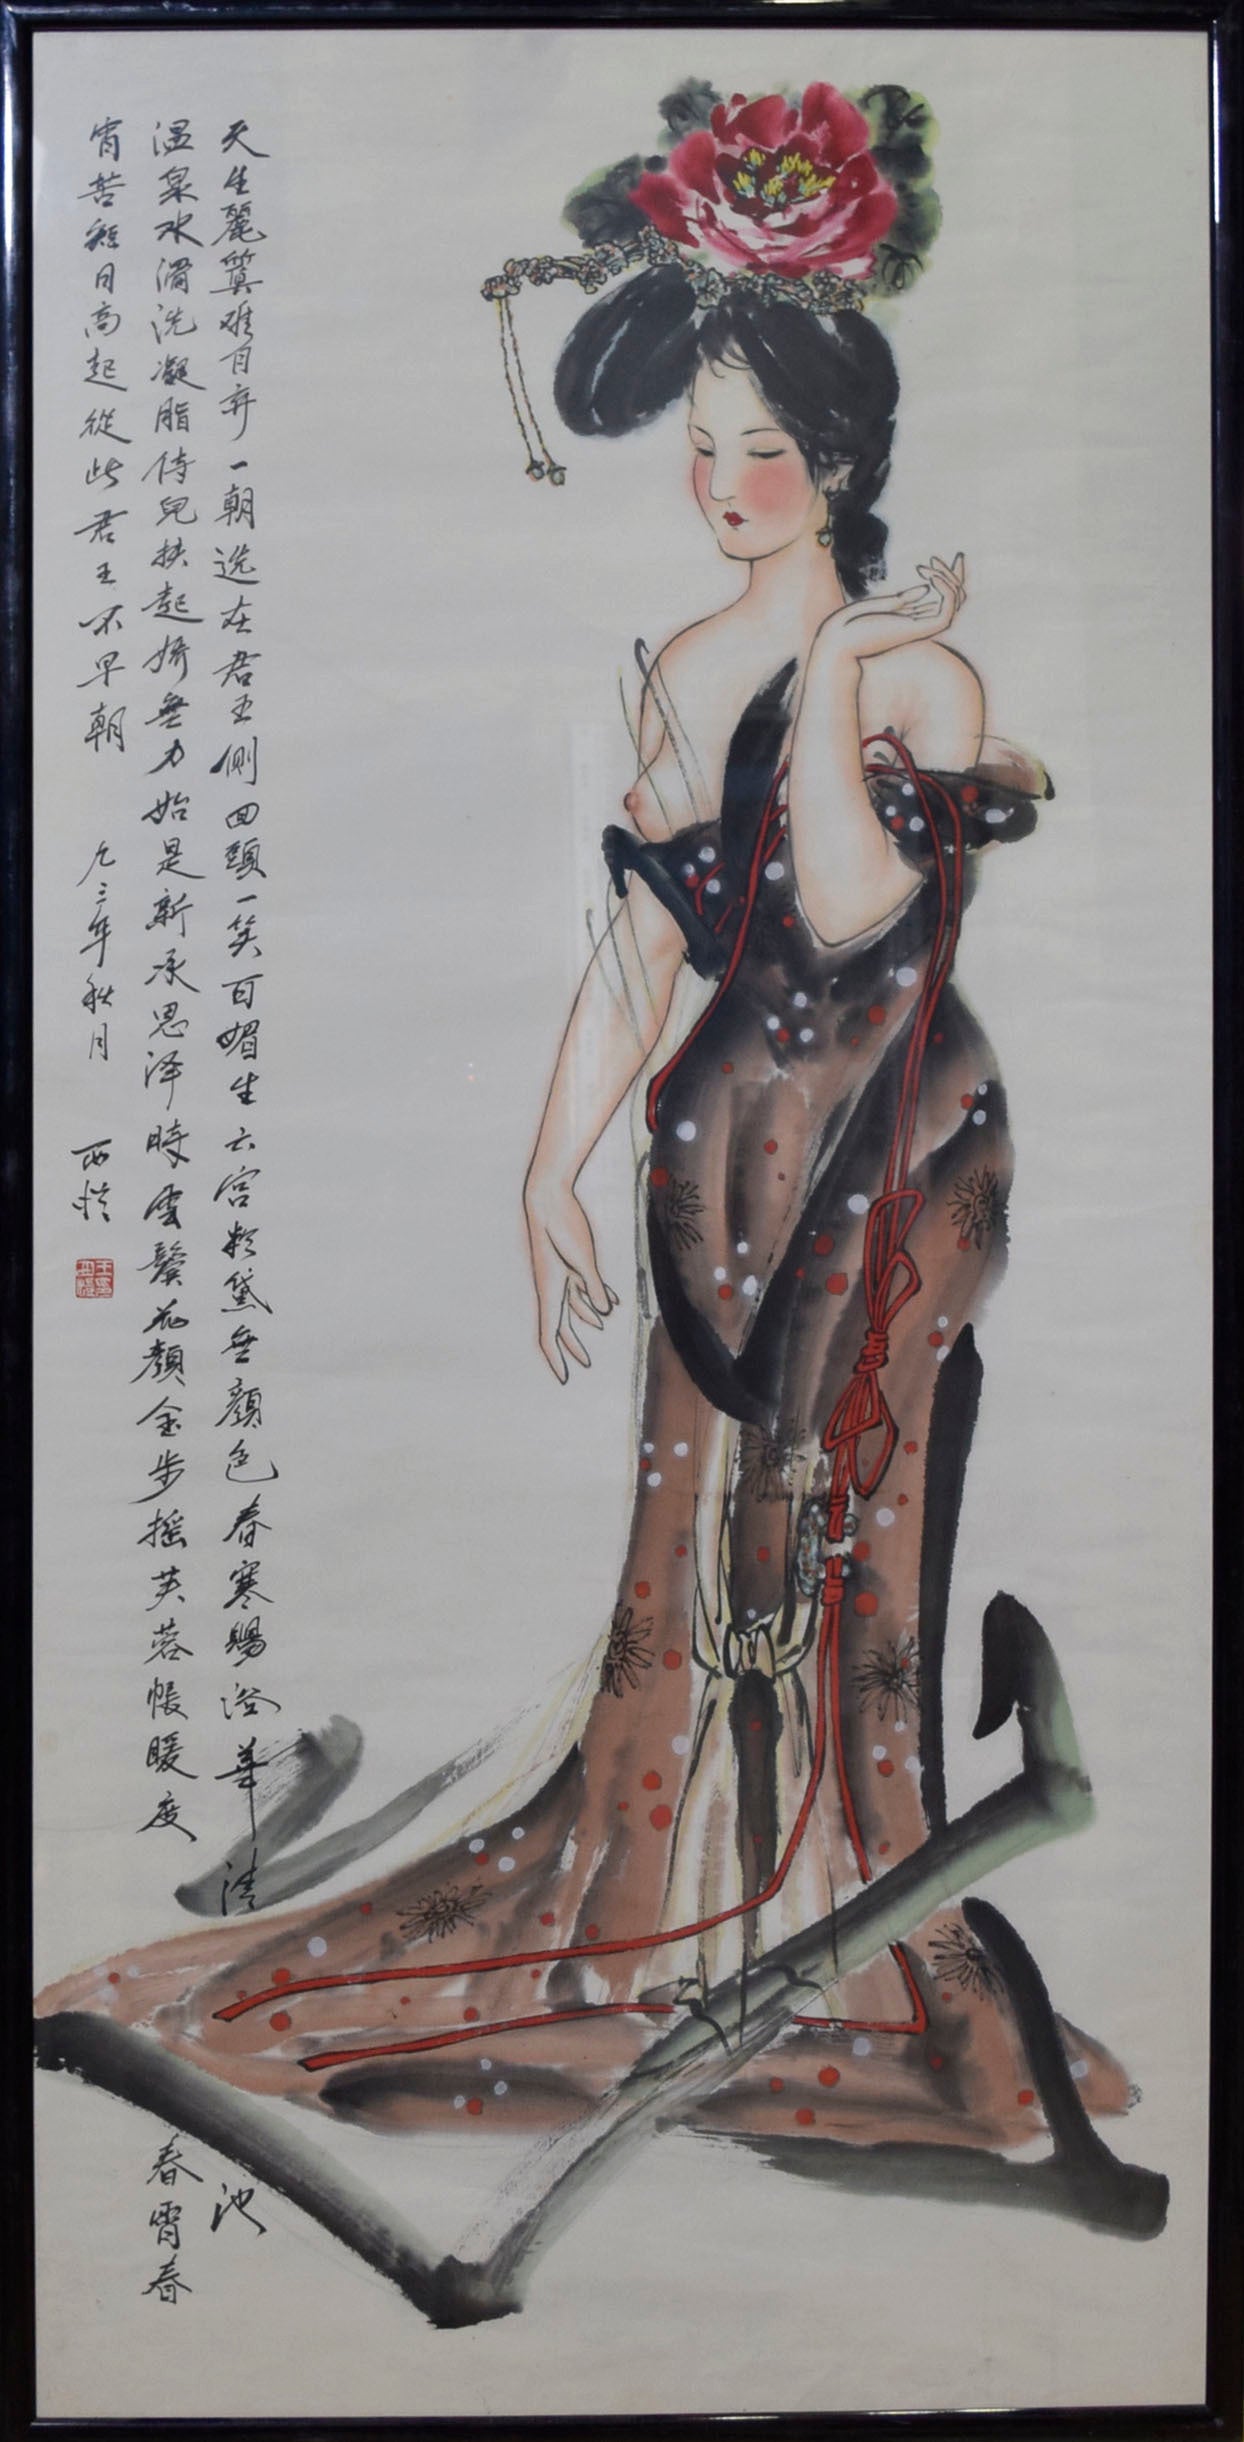 天生麗質難自弃一朝选在君王侧回頭一笑百媚生六宫粉黛無顔色春寒賜浴華清池
温泉水滑洗凝脂侍兒扶起娇無力始是新承恩泽時雲鬓花顏金步摇芙蓉帳暖度春宵春
宵苦短日高起從此君王不早朝 九三年秋月